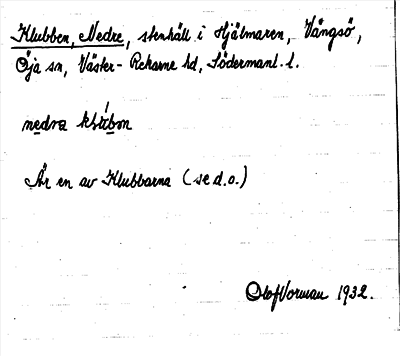 Klubben, Nedre, stenhäll i Hjälmaren, Vängsö,
Öja sn, Väster-Rekarne hd, Södermanl. l.
nedra
Är en av Klubbarna (se d.o.)
Olof Vorman 1932.